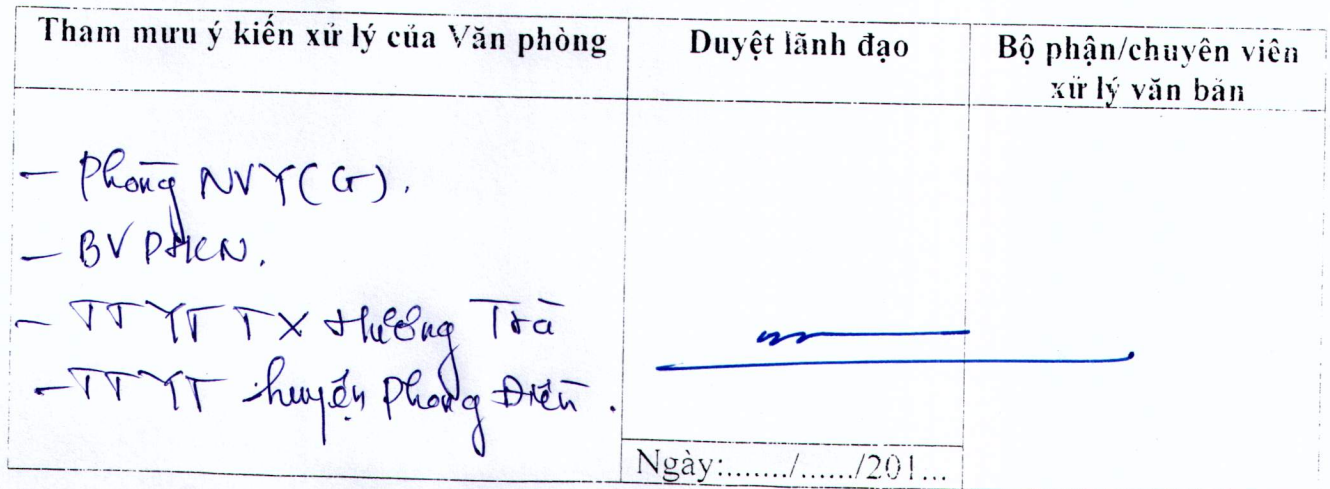 Tham mưu ý kiến xử lý của Văn phòng
Duyệt lãnh đạo
Bộ phận/chuyên viên
xử lý văn bản
- Phòng NVY (G).
- BV PHCN.
- TTYT TX Hương Trà
- TTYT huyện Phong Điền.
Ngày:......./....../201...